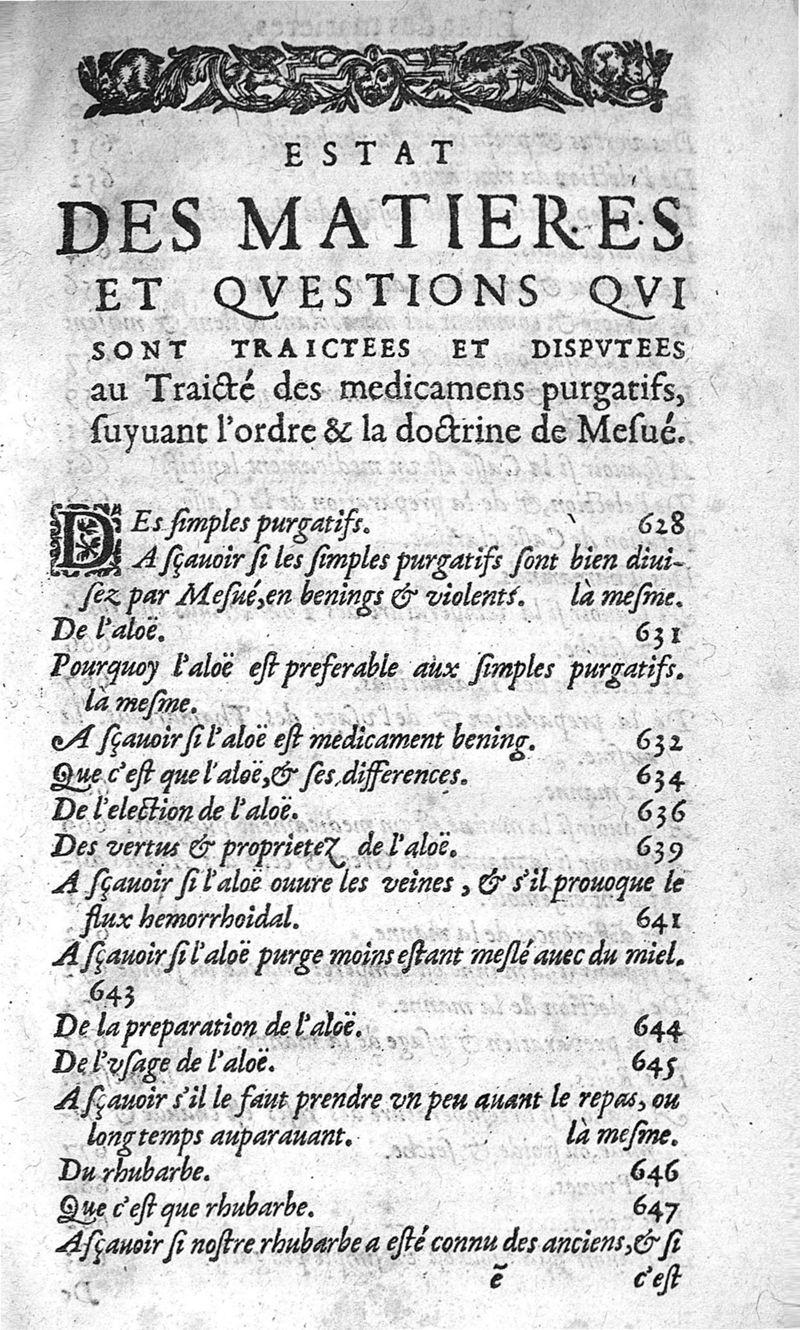 ESTAT
DES MATIERES
ET QVESTIONS QVI
SONT TRAICTEES ET DISPVTEES
au Traicté des medicamens purgatifs,
ſuyuant l'ordre & la doctrine de Meſué.
DEs ſimples purgatifs. 628
A ſçauoir ſi les ſimples purgatifs ſont bien diui-
ſez par Meſué,en benings & violents. là meſme.
De l'aloë. 631
Pourquoy l'aloë eſt preferable aux ſimples purgatifs.
là meſme.
A ſçauoir ſi l'aloë eſt medicament bening. 632
Que c'eſt que l'aloë,& ſes differences. 634
De l'election de l'aloë. 636
Des vertus & proprietez de l'aloë. 639
A ſçauoir ſi l'aloë ouure les veines , & s'il prouoque le
flux hemorrhoidal. 641
A ſçauoir ſi l'aloë purge moins eſtant meſlé auec du miel.
643
De la preparation de l'aloë. 644
De l'vſage de l'aloë. 645
A ſçauoir s'il le faut prendre vn peu auant le repas, ou
long temps auparauant. là meſme.
Du rhubarbe. 646
Que c'eſt que rhubarbe. 647
A ſçauoir ſi noſtre rhubarbe a eſté connu des anciens,& ſi
ẽ c'eſt